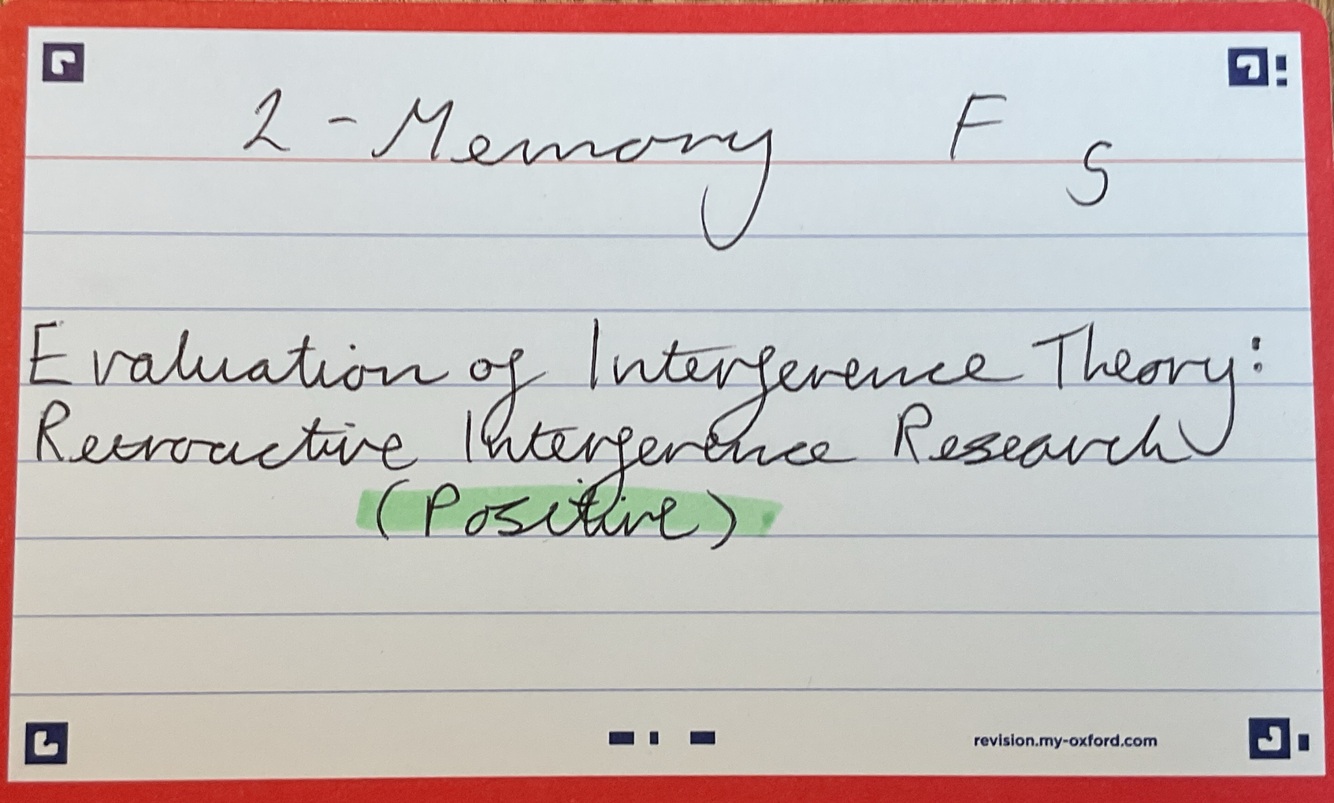 2 - Memory F S
Evaluation of Interference Theory:
Retroactive Interference Research
(Positive)
revision.my-oxford.com